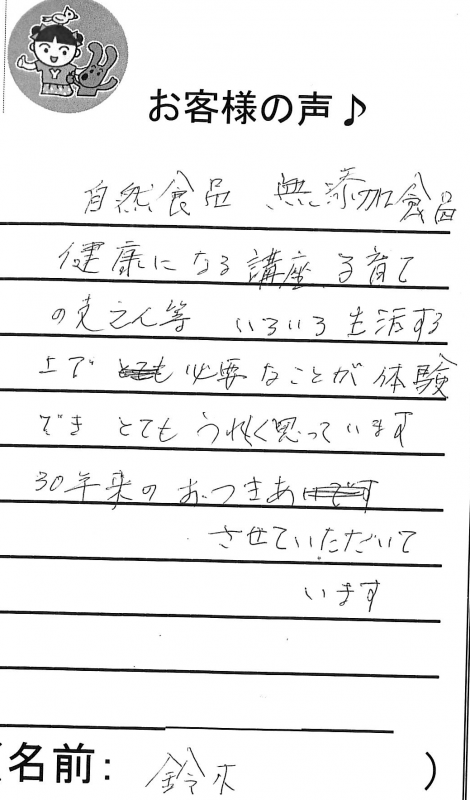 お客様の声♪
自然食品 無添加食品
健康になる講座 子育て
の支えん等 いろいろ生活する
上で 必要なことが体験
でき とても うれしく思っています
30年来の おつきあ
させていただいて
います
名前: 鈴木 )